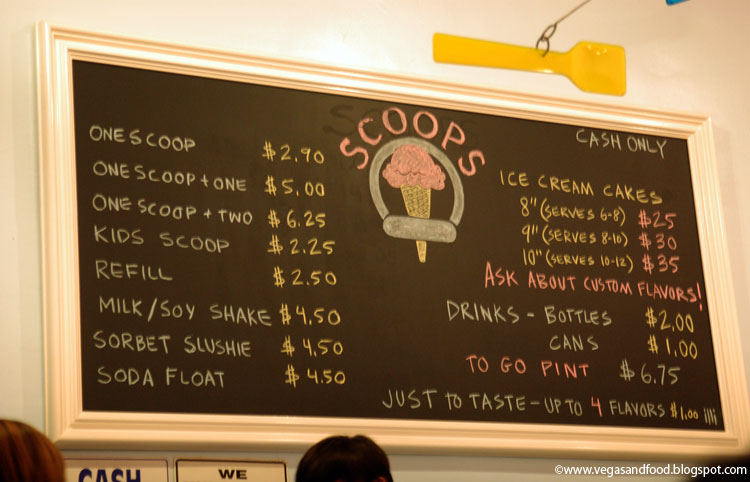 SCOOPS
ONE SCOOP $2.90
ONE SCOOP + ONE $5.00
ONE SCOOP + TWO $6.25
KIDS SCOOP $2.25
REFILL $2.50
MILK/SOY SHAKE $4.50
SORBET SLUSHIE $4.50
SODA FLOAT $4.50
CASH ONLY
ICE CREAM CAKES
8" (SERVES 6-8) $25
9" (SERVES 8-10) $30
10" (SERVES 10-12) $35
ASK ABOUT CUSTOM FLAVORS!
DRINKS - BOTTLES $2.00
CANS $1.00
TO GO PINT $6.75
JUST TO TASTE - UP TO 4 FLAVORS $1.00
CASH
WE
©www.vegasandfood.blogspot.com